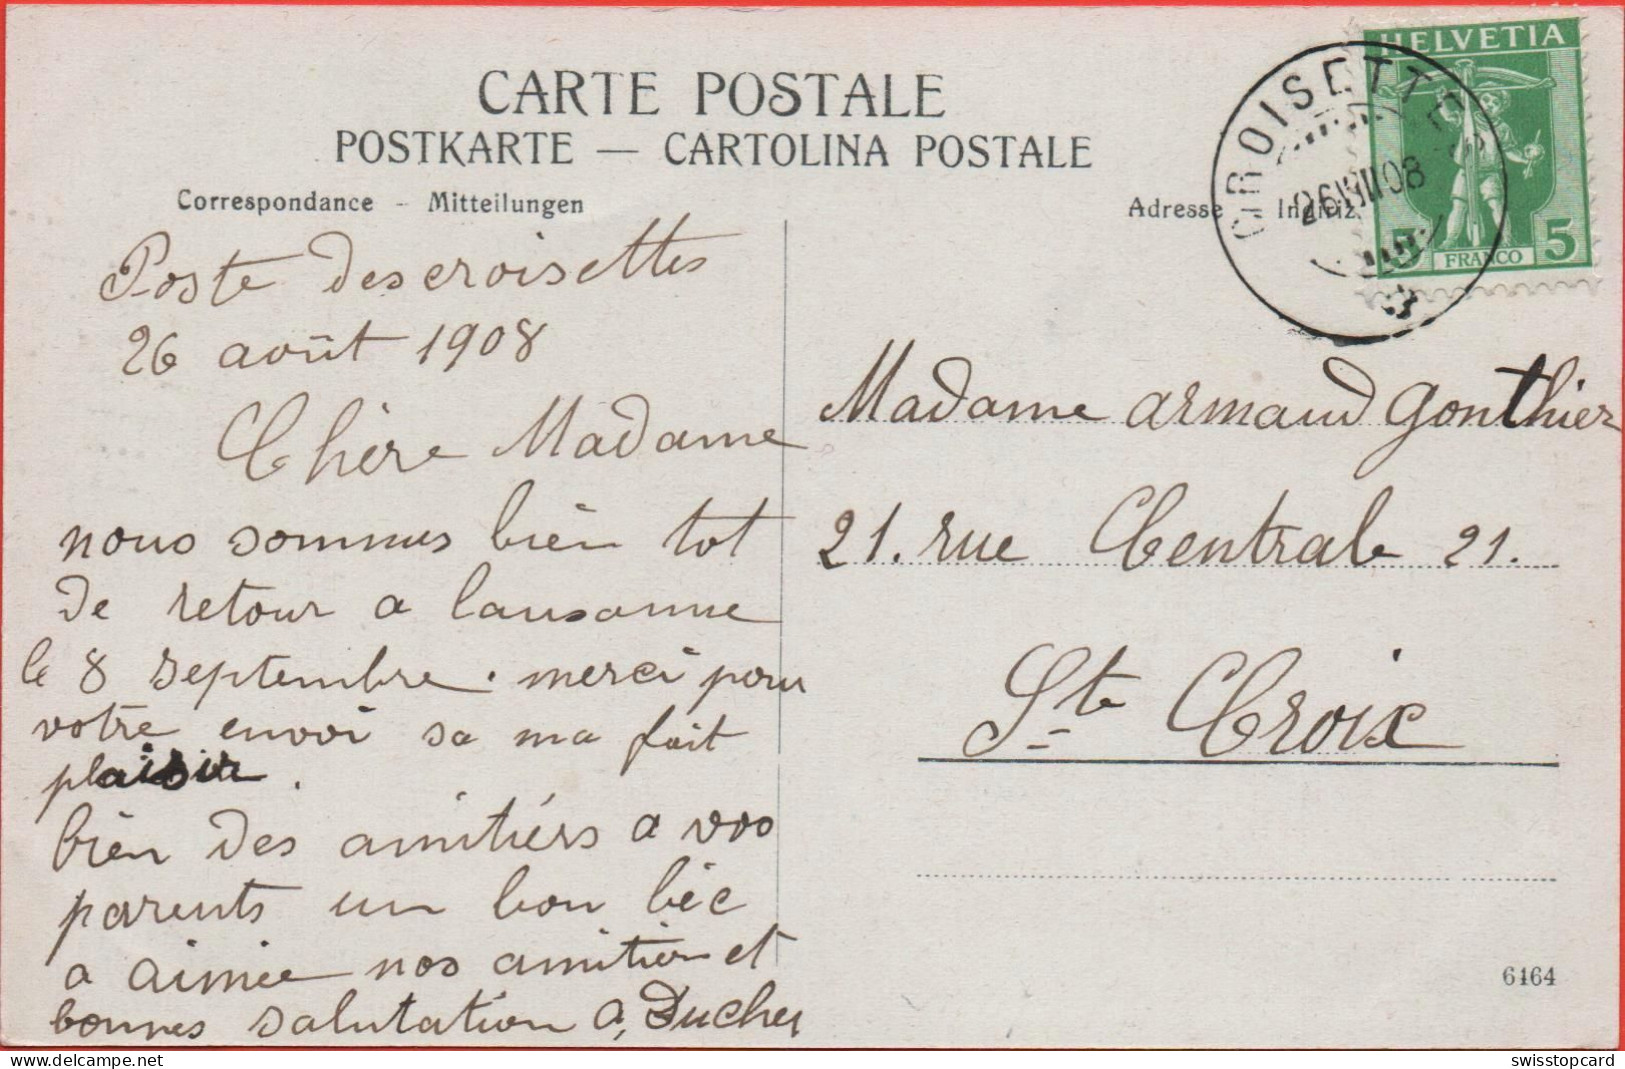 CARTE POSTALE
POSTKARTE — CARTOLINA POSTALE
Correspondance - Mitteilungen
Adresse Indiriz
HELVETIA
5 FRANCO 5
CROISETTES
26 VIII 08
Poste des croisettes
26 août 1908
Chère Madame
nous sommes bièn tot
de retour a lausanne
le 8 septembre. merci pour
votre envoi sa ma fait
plaisir.
bièn des amitiérs a vos
parents un bon béc
a aimée nos amitier et
bonnes salutation A, Ducher
Madame armand gonthier
21. rue Centrale 21.
Ste Croix
6164
delcampe.net
swisstopcard